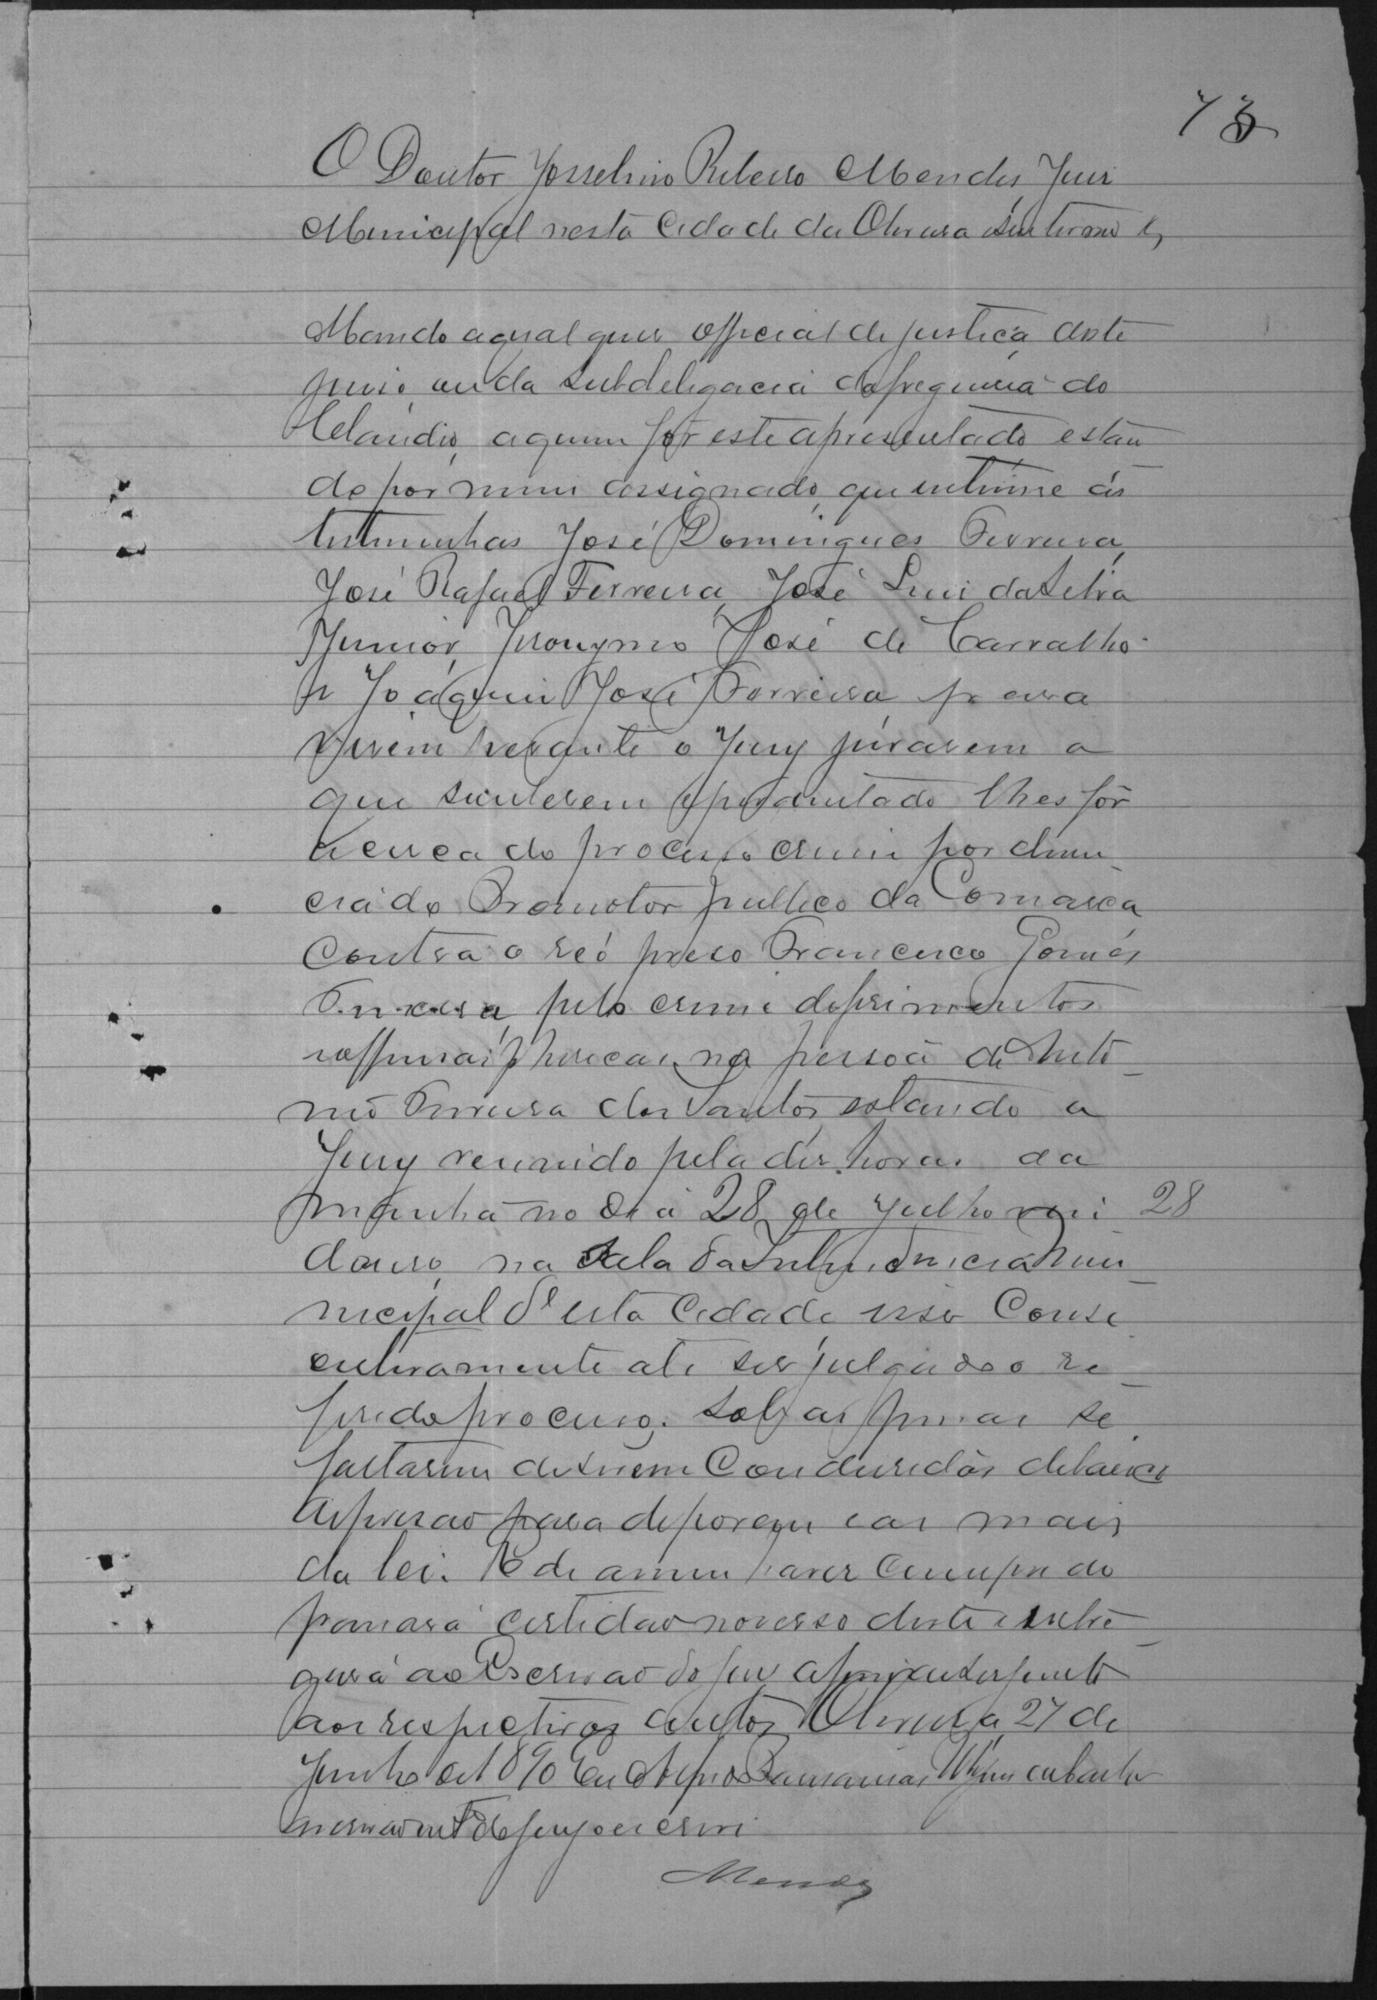 73
O Doutor Josselino Ribeiro Mendes Juis
Municipal nesta Cidade da Oliveira seu termo &
Mando a qual quer official de justiça deste
juiso ou da subdelegacia da freguesia do
Claudio, a quem for este apresentado estan
do por mim assignado, que intime ás
testimunhas José Domingues Ferreira,
José Rafael Ferreira, José Luis da Silva
Junior, Jeronymo José de Carvalho
e Joaquim José Ferreira para
virem perante o Jury jurarem o
que souberem e perguntado lhes fôr
acerca do processo crime por denun
cia do Promotor publico da Comarca
contra o reó preso Francisco Gomes
pelo crime de ferimentos
e offensas phisicas na pessoa de Anto
nio Ferreira dos Santos, estando o
Jury reunido pela des horas da
manhã no dia 28 de Julho vin 28
douro, na sala da Intendencia Mu
nicipal d'esta Cidade isso Conse
cutivamente até ser julgado o re
ferido processo. Sob as penas se
faltarem de serem Condusidas debaixo
de prisão para deporem e as mais
da lei. E de assim haver cumprido
passará certidão no verso deste e entre
gará ao Escrivão do jury afim de ser junto
aos respectivos autos Oliveira, 27 de
Junho de 1890 Eu
escrivão int do jury o escrevi
Mendes